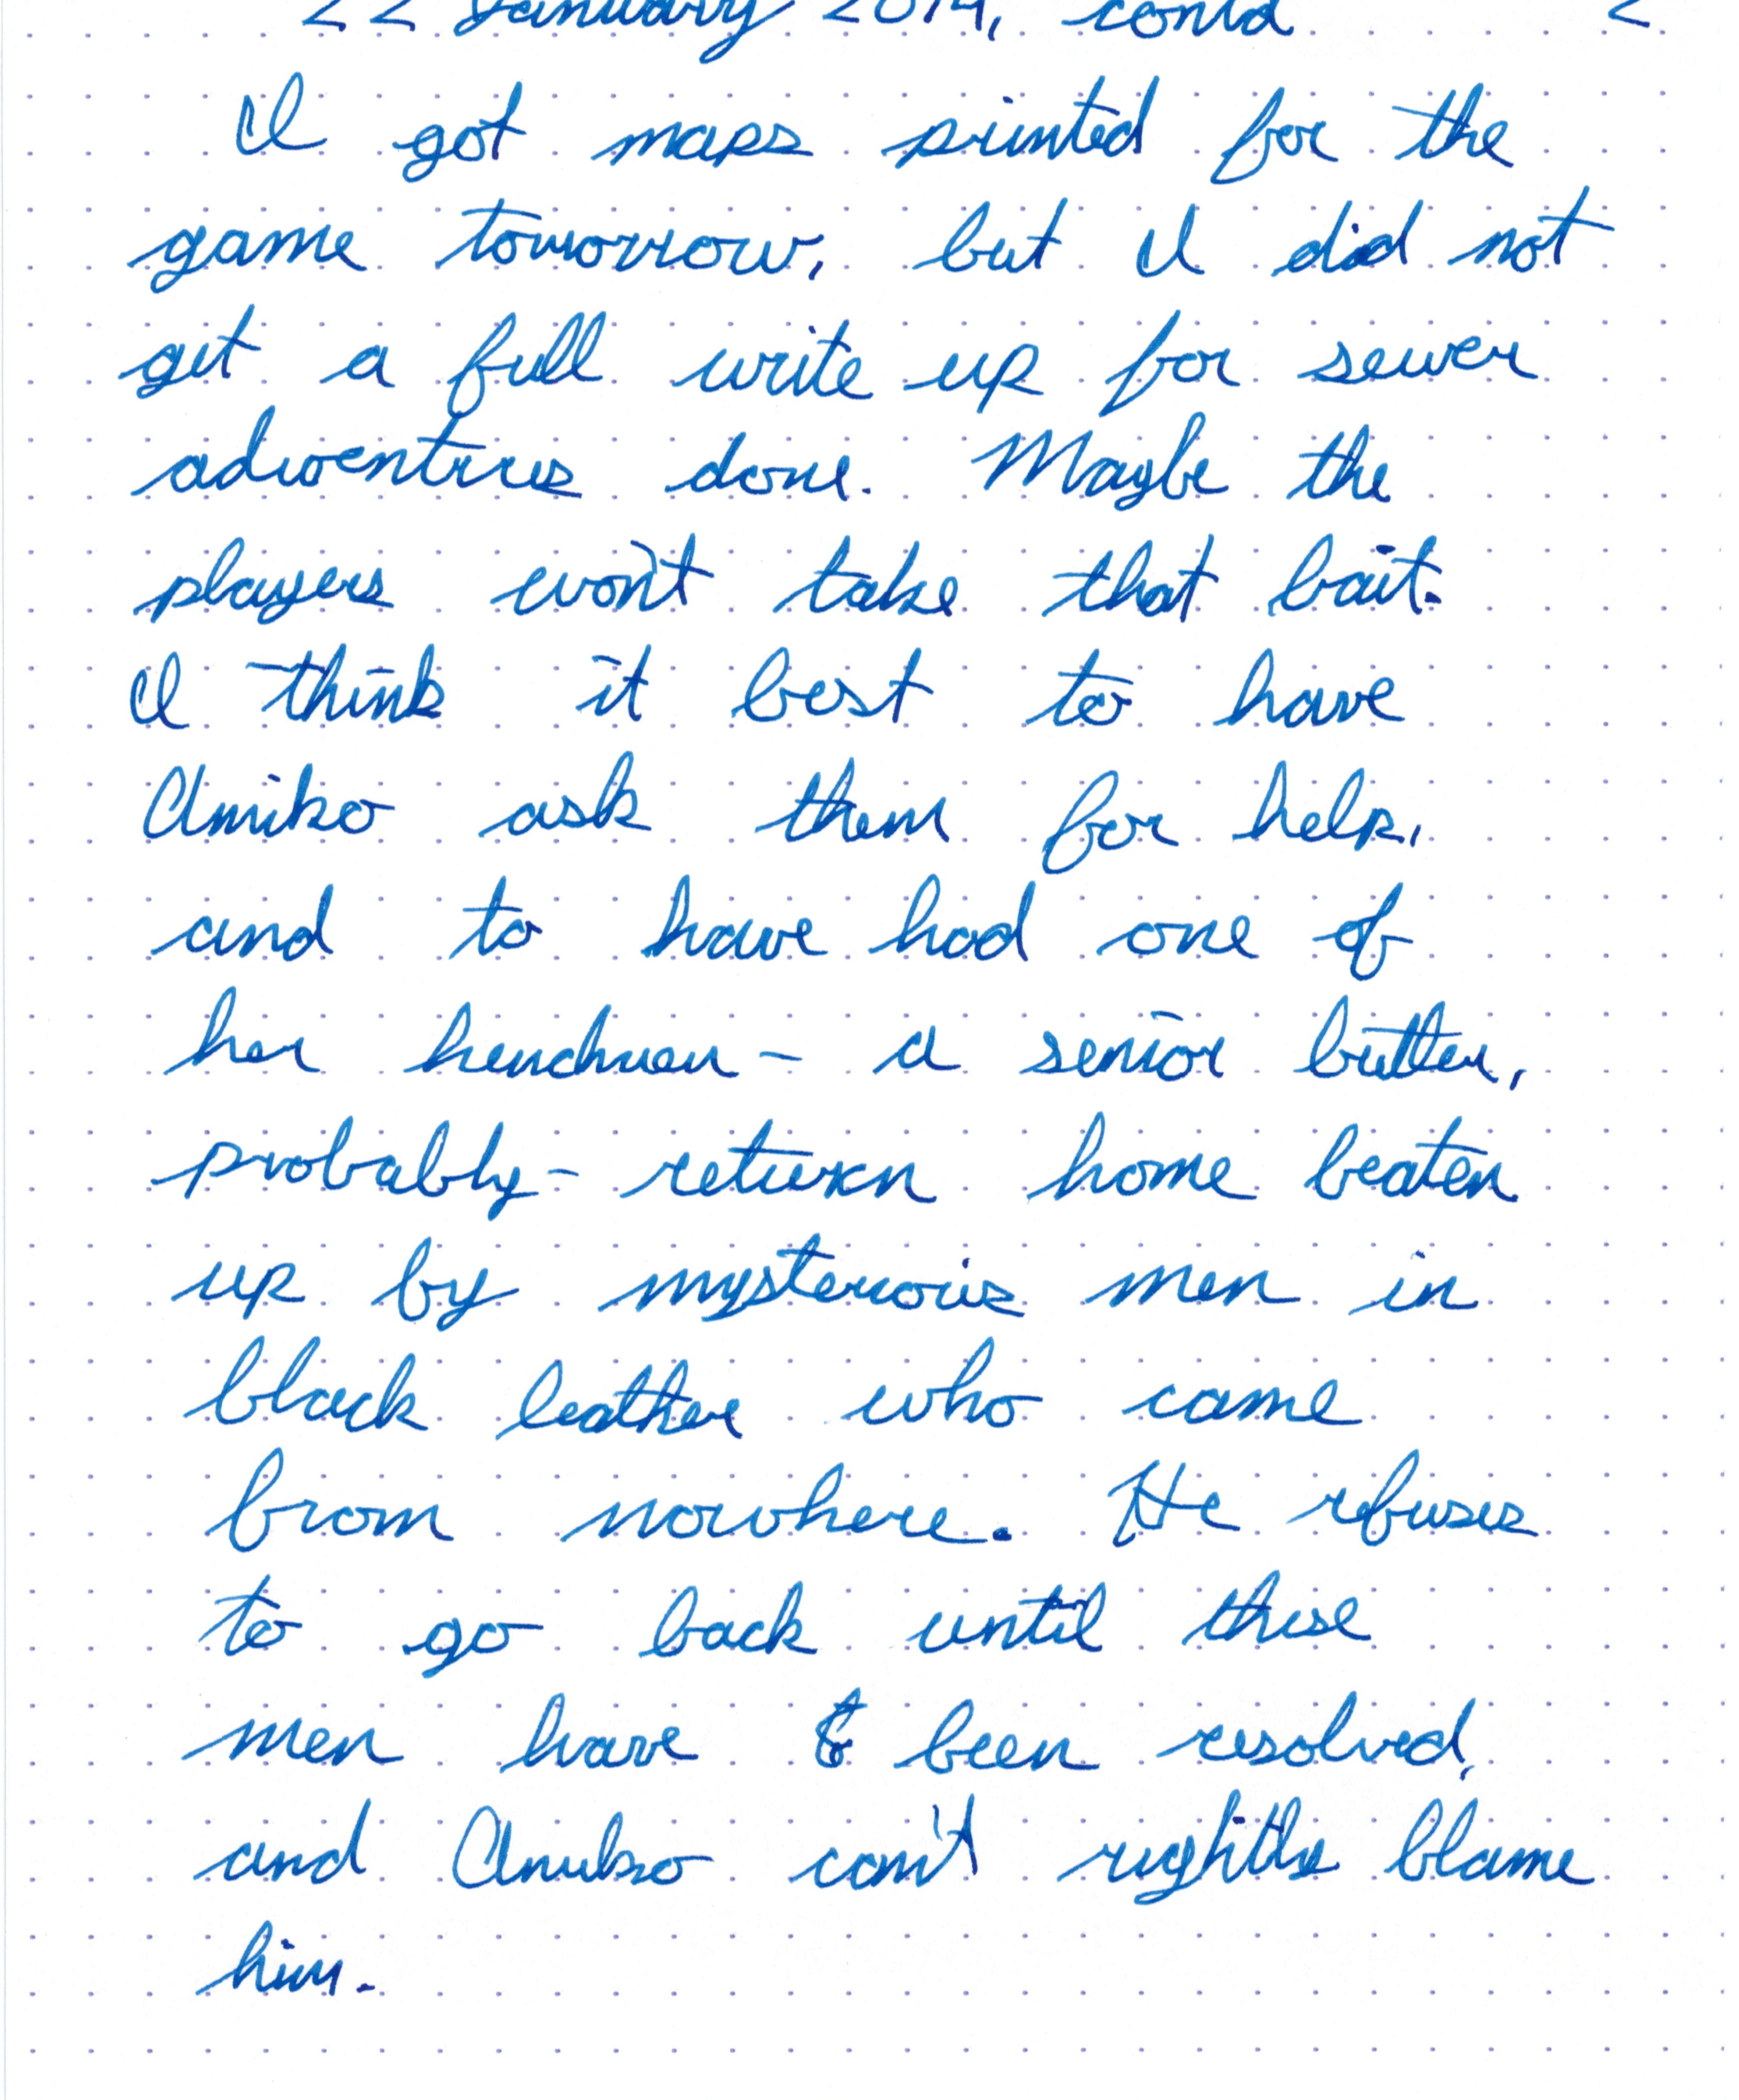 22 January 2014, contd 2
I got maps printed for the
game tomorrow, but I did not
get a full write up for sewer
adventures done. Maybe the
players won't take that bait.
I think it best to have
Amiko ask them for help,
and to have had one of
her henchmen - a senior butler,
probably - return home beaten
up by mysterious men in
black leather who came
from nowhere. He refuses
to go back until these
men have been resolved,
and Amiko can't rightly blame
him.